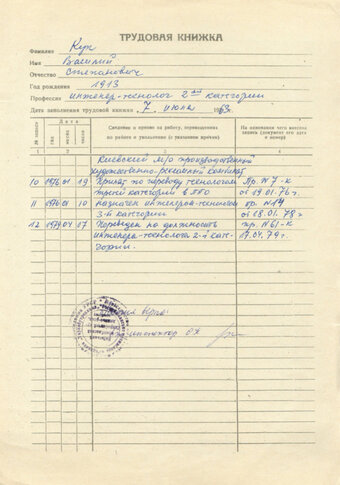 ТРУДОВАЯ КНИЖКА
Фамилия Кук
Имя Василий
Отчество Степанович
Год рождения 1913
Профессия инженер-технолог 2ой категории
Дата заполнения трудовой книжки 7 июня 1963г.
№ записи
Дата
год
месяц
число
Сведения о приеме на работу, перемещениях по работе и увольнении (с указанием причин)
На основании чего внесена запись (документ, его дата и номер)
1 2 3 4
Киевский производственный
художественно-рекламный комбинат
10 1976 01 19 Принят по переводу технологом Пр. № 7-к
третей категории в от 19.01.76 г.
11 1978 01 10 назначен инженером-технологом пр. №14
3-й категории от 18.01.78 г
12 1979 04 17 Переведен на должность пр. №61-к
инженера-технолога 2-й кате- 17.04.79 г.
гории.
инспектор ОК